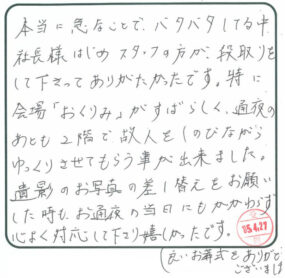 本当に急なことで、バタバタしてる中
社長様はじめスタッフの方が、段取りを
して下さってありがたかったです。特に
会場「おくりみ」がすばらしく、通夜の
あとも2階で故人をしのびながら
ゆっくりさせてもらう事が出来ました。
遺影のお写真の差し替えをお願い
した時も、お通夜の当日にもかかわらず
心よく対応して下さり嬉しかったです。
15.4.27
(良いお葬式をありがとう
ございました